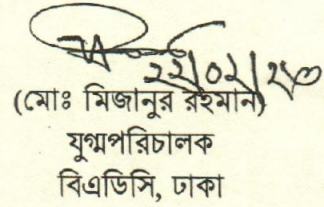 ২২/০২/২৩
(মোঃ মিজানুর রহমান)
যুগ্মপরিচালক
বিএডিসি, ঢাকা